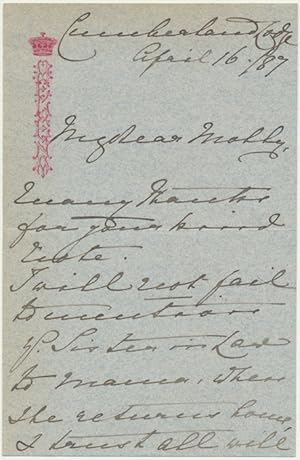 HELENA
Cumberland Lodge
April 16. /87
My dear Motty,
Many thanks
for your kind
note.
I will not fail
to mention
yr. Sister in Law
to Mama, when
she returns home,
I trust all will